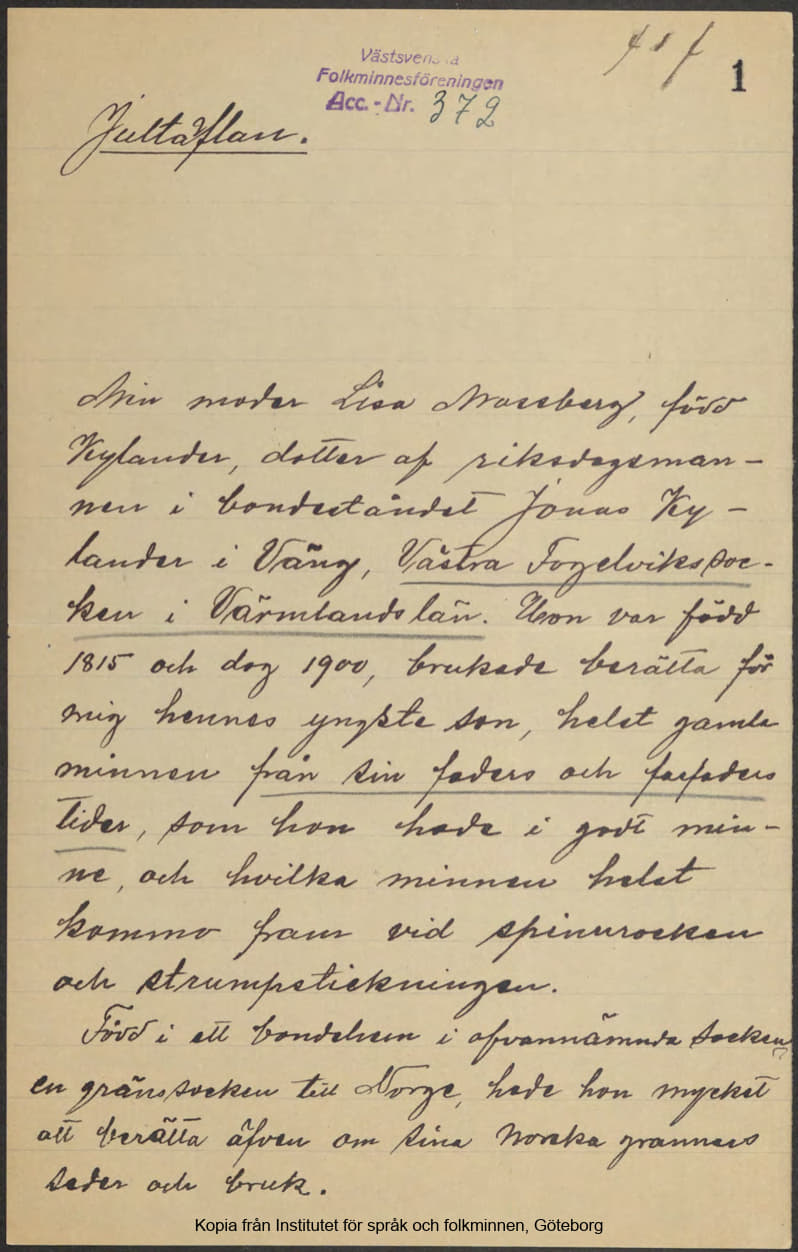 Västsvenska
Folkminnesföreningen
Acc. - Nr. 372
1
Jultaflan.
Min moder Lisa Mossberg, född
Kylander, dotter af riksdagsman-
nen i bondeståndet Jonas Ky-
lander i Väng, Västra Fogelviks soc-
ken i Värmlands län. Hon var född
1815 och dog 1900, brukade berätta för
mig hennes yngste son, helst gamla
minnen från sin faders och farfaders
tider, som hon hade i godt min-
ne, och hvilka minnen helst
kommo fram vid spinnrocken
och strumpstickningen.
Född i ett bondehem i ofvannämnda socken
en gränssocken till Norge, hade hon mycket
att berätta äfven om sina Norska grannars
seder och bruk.
Kopia från Institutet för språk och folkminnen, Göteborg